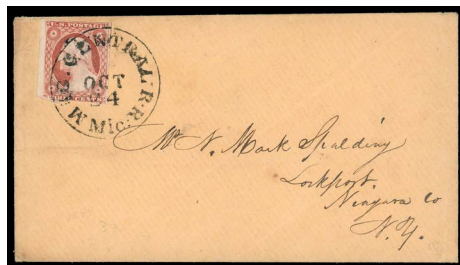 U.S. POSTAGE
MIC. CENTRAL R.R.
OCT
24
Mic.
Mr N. Mack Spalding
Lockport.
Niagara Co
N.Y.